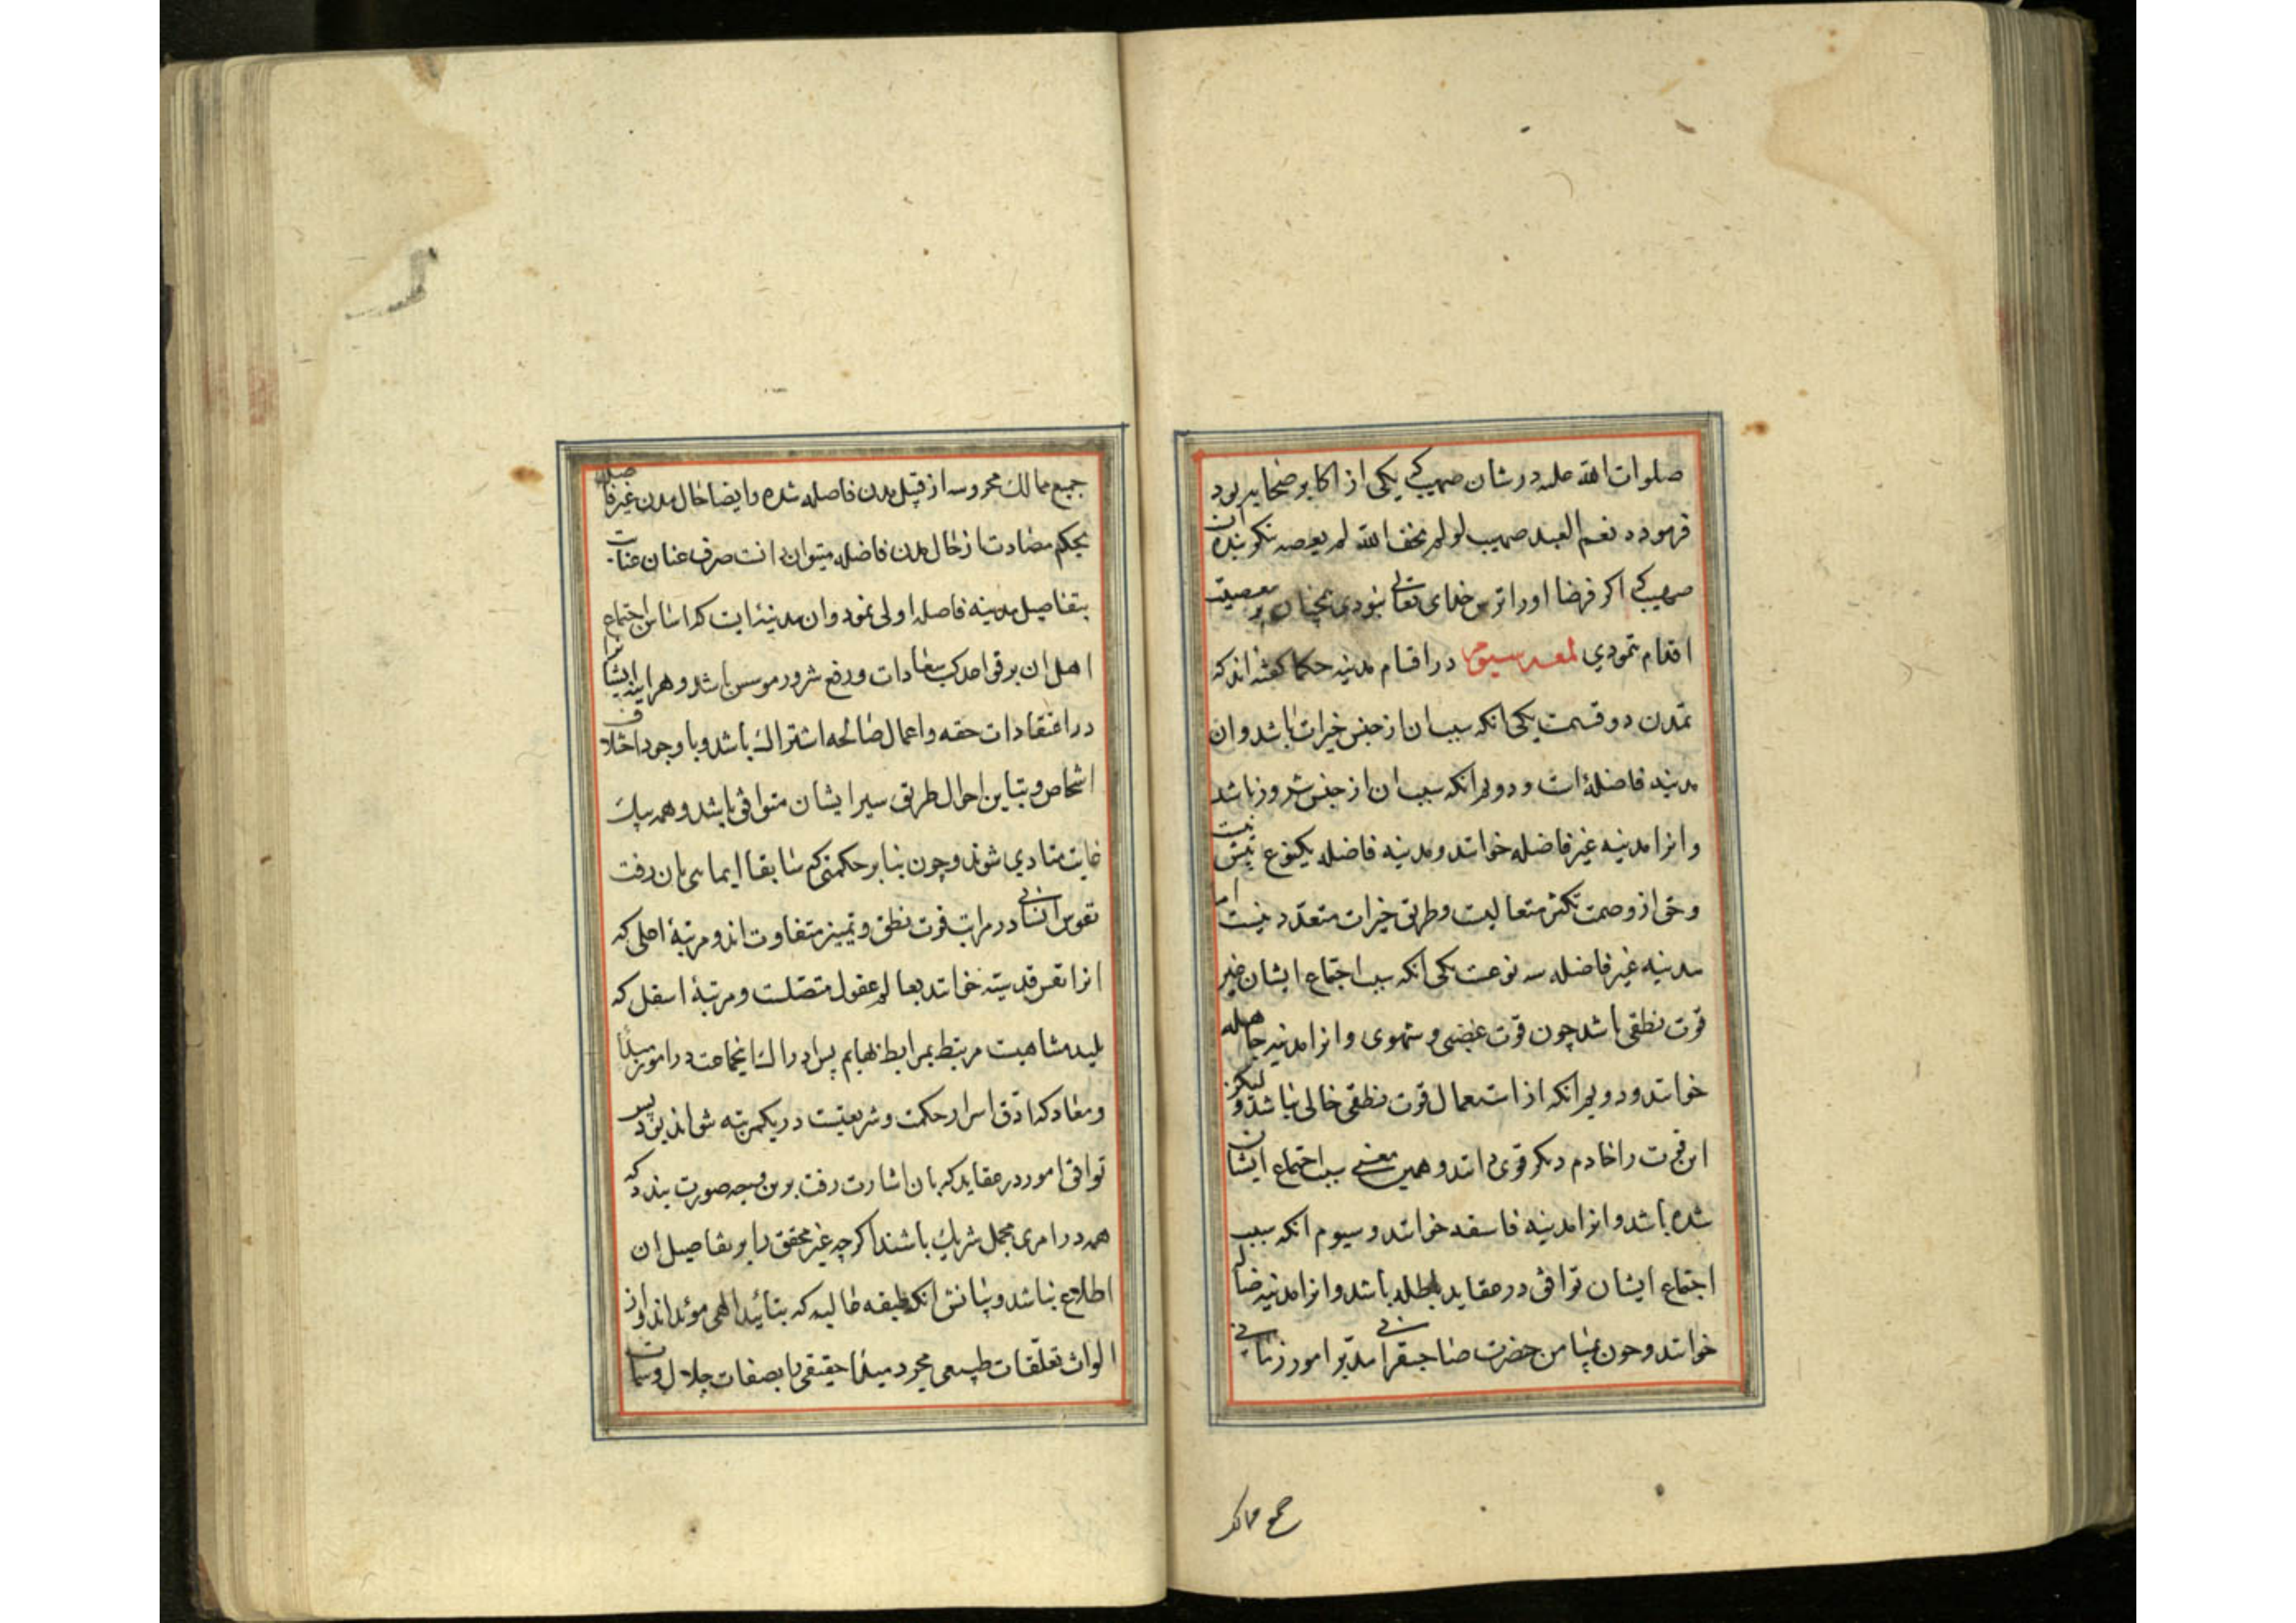 صلوات الله علیه در شان صهیب که یکی از اکابر صحابه بود
فرموده نعم العبد صهیب لو لم یخف الله لم یعصه نیکو بنده ان
صهیب که اگر فرضا او را ترس خدای تعالی نبودی همچنان بر معصیت
اقدام ننمودی لمعه سیوم در اقسام مدینه حکما گفته اند که
تمدن دو قسمت یکی انکه سبب ان از جنس خیرات باشد و ان
مدینه فاضله است و دویم انکه سبب ان از جنس شرور باشد
و انرا مدینه غیر فاضله خوانند و مدینه فاضله یکنوع بیش نیست
و حق از وصمت تکثر متعالیست و طریق خیرات متعدد نیست اما
مدینه غیر فاضله سه نوعست یکی انکه سبب اجتماع ایشان غیر
قوت نطقی باشد چون قوت غضبی و شهوی و انرا مدینه جاهله
خوانند و دویم انکه از استعمال قوت نطقی خالی نباشد و لیکن
این قوت را خادم دیگر قوی دانند و همین معنی سبب اجتماع ایشان
شده باشد و انرا مدینه فاسقه خوانند و سیوم انکه سبب
اجتماع ایشان توافق در عقاید باطله باشد و انرا مدینه ضاله
خوانند و چون بمیامن حضرت صاحبقرانی مدبر امور زمانی
جمیع ممالک
جمیع ممالک محروسه از قبیل مدن فاضله شده و ایضا حال مدن غیر فاضله
بحکم مضادت از حال مدن فاضله میتوان دانست صرف عنان عنایت
بتفاصیل مدینه فاضله اولی نمود و ان مدینه ایست که اساس اجتماع
اهل ان بر قواعد کسب سعادات و دفع شرور موسس باشد و هر اینه ایشانرا
در اعتقادات حقه و اعمال صالحه اشتراک باشد و با وجود اختلاف
اشخاص و تباین احوال طریق سیر ایشان متوافق باشد و همه بیک
غایت متادی شوند و چون بنا بر حکمتی که سابقا ایمایی بان رفت
نفوس انسانی در مراتب قوت نطق و تمیز متفاوت اند و مرتبهٔ اعلی که
انرا نفس قدسیه خوانند بعالم عقول متصلست و مرتبهٔ اسفل که
بلید مشاهیست مرتبط بمرابط بهایم پس ادراک انجماعت در امور مبدا
و معاد که ادق اسرار حکمت و شریعتست در یکمرتبه نتواند بود پس
توافق امور در عقاید که بان اشارت رفت برین وجه صورت بندد که
همه در امری مجمل شریک باشند اگرچه غیر محقق را بر تفاصیل ان
اطلاع نباشد و بیانش انکه طبقه عالیه که بتائید الهی موئد اند و از
الواث تعلقات طبیعی مجرد مبدا حقیقی را بصفات جلال و سمات